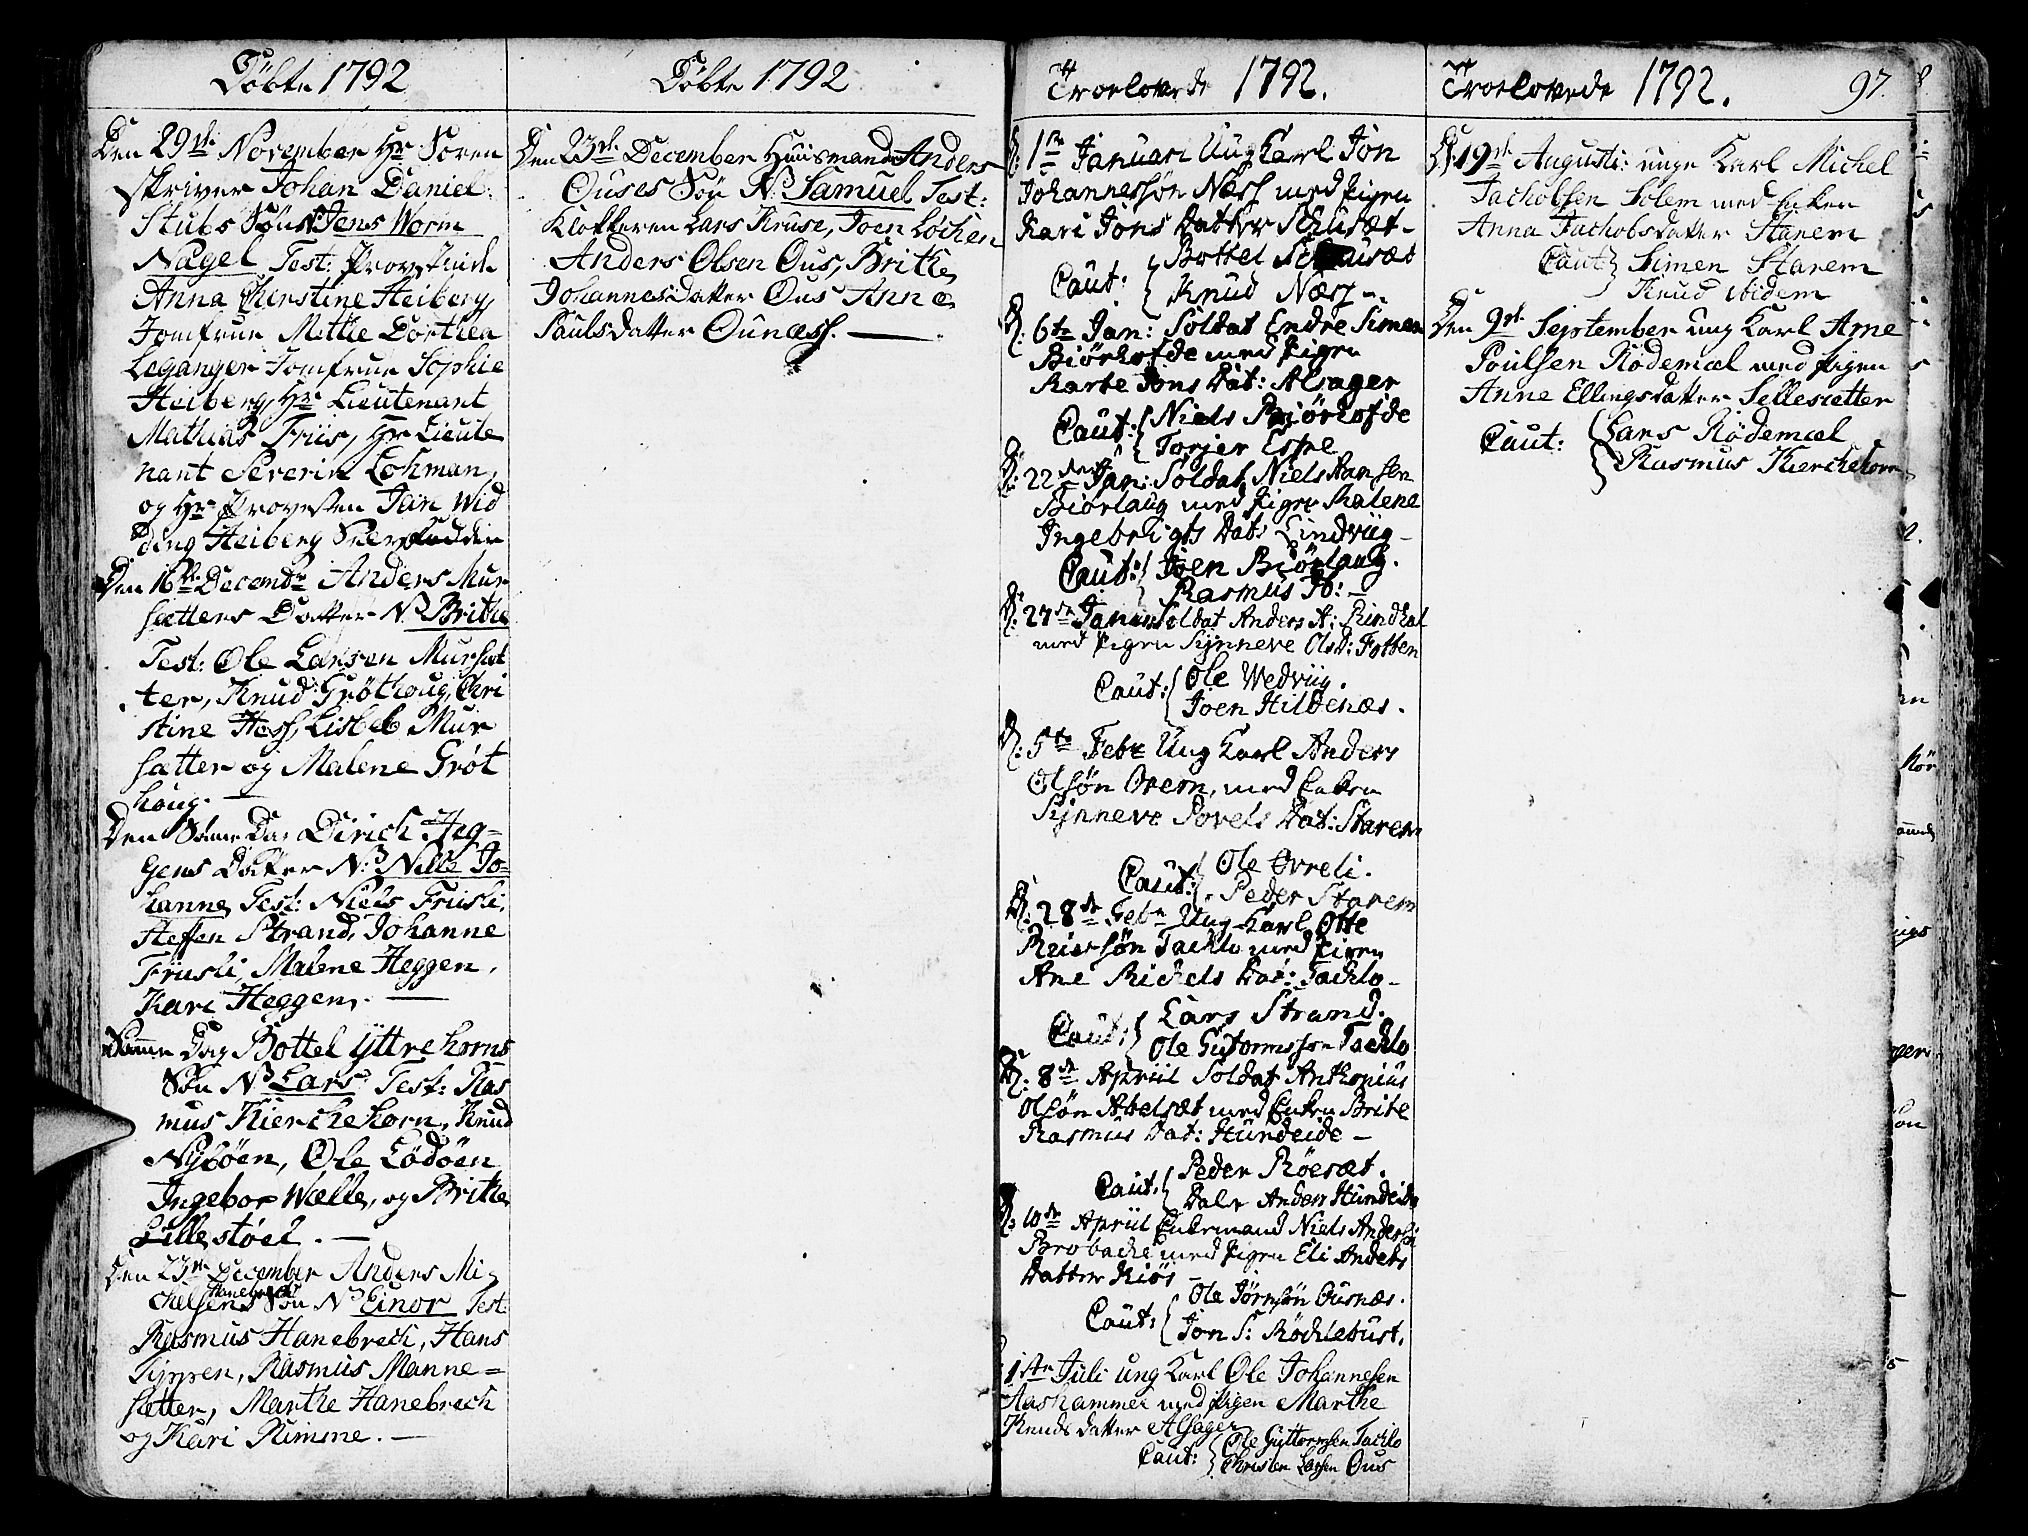 Döbte 1792
Den 29de November Hr Soren
skriver Johan Daniel
Stubs Søn N Jens Worm
Nagel Test: Provstinde
Anna Christine Heiberg,
Jomfrue Mettie Dorthea
Leganger Jomfrue Sophie
Heiberg, Hr Lieutenant
Mathias Friis, Hr Lieute
nant Severin Lohman,
og Hr Provsten Jan Wid
ding Heiberg
Den 16de Decembr Anders Mur
sætters Datter N. Brithe
Test: Ole Larsen Mursæt
ter, Knud Gröthoug, Chri
stine Hess, Lisbeb Mur
sætter og Malene Gröt
houg.
Den Samme Dag Dirich Heg-
gens Datter N: Nille Jo-
hanne, Test: Niels Friisli,
Steffen Strand, Johanne
Friisli, Malene Heggen,
Kari Heggen. —
Samme Dag Bottel Yttrehorns
Søn N Lars Test: Ras
mus Kierchehorn, Knud
Nyböen, Ole Lödöen
Ingebor Welle, og Brithe
Lillestöel. —
Den 23de December Anders Mi-
Hanebrech
chelsens Søn N Einor Test:
Rasmus Hanebrech, Hans
Tippen, Rasmus Manne-
sætter, Marthe Hanebrech
og Kari Rimme. —
Döbte 1792
Den 23de December Huusmand Anders
Ouses Søn N. Samuel Test:
Klokkeren Lars Kruse, Joen Löchen
Anders Olsen Ous, Brithe
Johannesdatter Ous Anne
Paulsdatter Ounæss. —
Troelovede 1792.
D: 1ste Januari Ung Karl Jon
Johannessøn Næss med Pigen
Kari Jons Datter
Caut: { Bottel
Knud Næss -
D. 6te Jan: Soldat Endre Simen
Biörhofde med Pigen
Marte Jons Dat: Alsager
Caut: { Niels Biörhofde
Torjer Espe
D: 22de Jan: Soldat Niels Hansen
Biörlaug med Pigen Malene
Ingebrigts Dat: Lindviig -
Caut: { Joen Biörlaug.
Rasmus D: -
D: 27de Januar Soldat Anders A: Rindhal
med Pigen Synneve Ols D: Fotten
Caut: { Ole Wedviig.
Joen Hildenæs.
D: 5te Febr Ung Karl Anders
Olsøn Orem, med Enken
Synneve Povels Dat: Starem
Caut: { Ole Evreli.
Peder Starem
D: 28de Febr Ung Karl Otte
Reiersøn Tachlo med Pigen
Ane Michels Dat: Tachlo -
Caut: { Lars Strand.
Ole Gutormssøn Tachlo
D: 8de April Soldat Anthonius
Olsøn Abelsæt med Enken Brite
Rasmus Dat: Hundeide -
Caut: { Peder Röesæt.
Anders Hundeide
D: 10de April Enkemand Niels Anders:
Brobache med Pigen Eli Anders
Datter Riös -
Caut: { Ole Jörnsøn Ousnæs.
Jon S: Röchlebust.
1ste Juli ung Karl Ole Johannesen
Aashammer med Pigen Marthe
Knudsdatter Alsager
Caut: { Ole Guttormsen Tachlo
Christen Larsen Ous
Troelovede 1792. 97.
D: 19de Augusti: unge Karl Michel
Jachobsen Solem med Enken
Anna Jachobsdatter Starem
Caut { Simen Starem
Knud ibidem
Den 9de September ung Karl Arne
Poulsen Rödemæl med Pigen
Anne Ellingsdatter Sellesætter
Caut: { Lars Rödemæl
Rasmus Kierchehorn